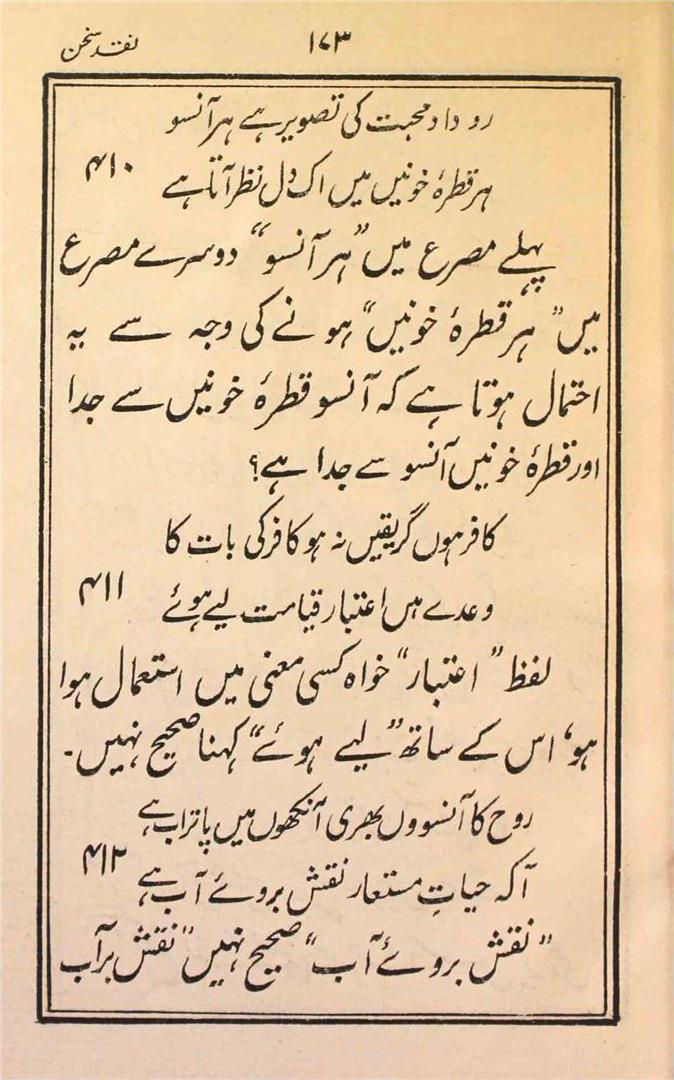 نقد سخن
۱۷۳
روداد محبت کی تصویر ہے ہر آنسو
ہر قطرۂ خونیں میں اک دل نظر آتا ہے
۴۱۰
پہلے مصرع میں "ہر آنسو" دوسرے مصرع
میں "ہر قطرۂ خونیں" ہونے کی وجہ سے یہ
احتمال ہوتا ہے کہ آنسو قطرۂ خونیں سے جدا
اور قطرۂ خونیں آنسو سے جدا ہے؟
کافر ہوں گر یقیں نہ ہو کافر کی بات کا
وعدے ہیں اعتبار قیامت لیے ہوئے
۴۱۱
لفظ "اعتبار" خواہ کسی معنی میں استعمال ہوا
ہو، اس کے ساتھ "لیے ہوئے" کہنا صحیح نہیں۔
روح کا آنسووں بھری آنکھوں میں پا تراب ہے
آ کہ حیاتِ مستعار نقش بروئے آب ہے
۴۱۲
"نقش بروئے آب" صحیح نہیں "نقش برآب